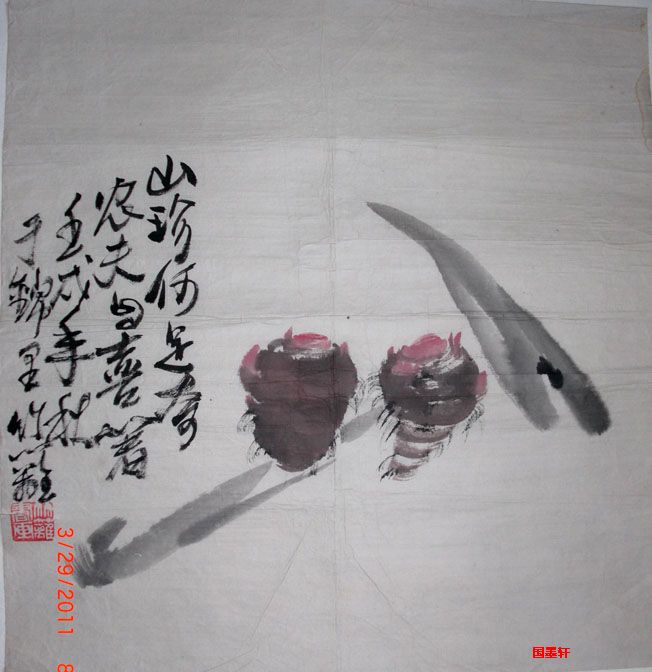 山珍何足奇
农夫自喜著
壬戌年秋
于錦里竹籬
3/29/2011 8
国墨轩